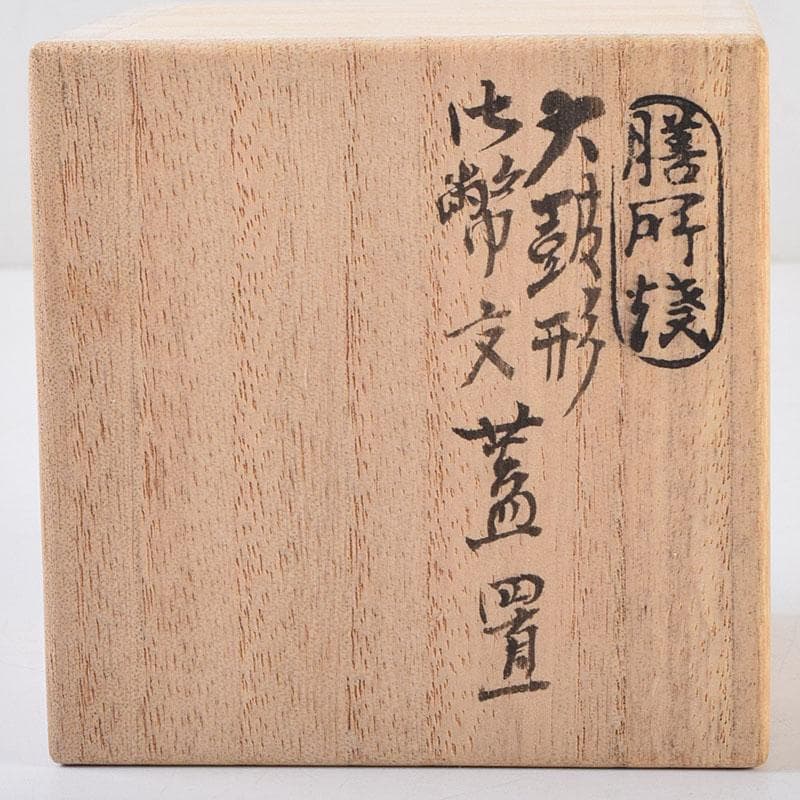 膳所焼
太鼓形
御幣文
蓋置